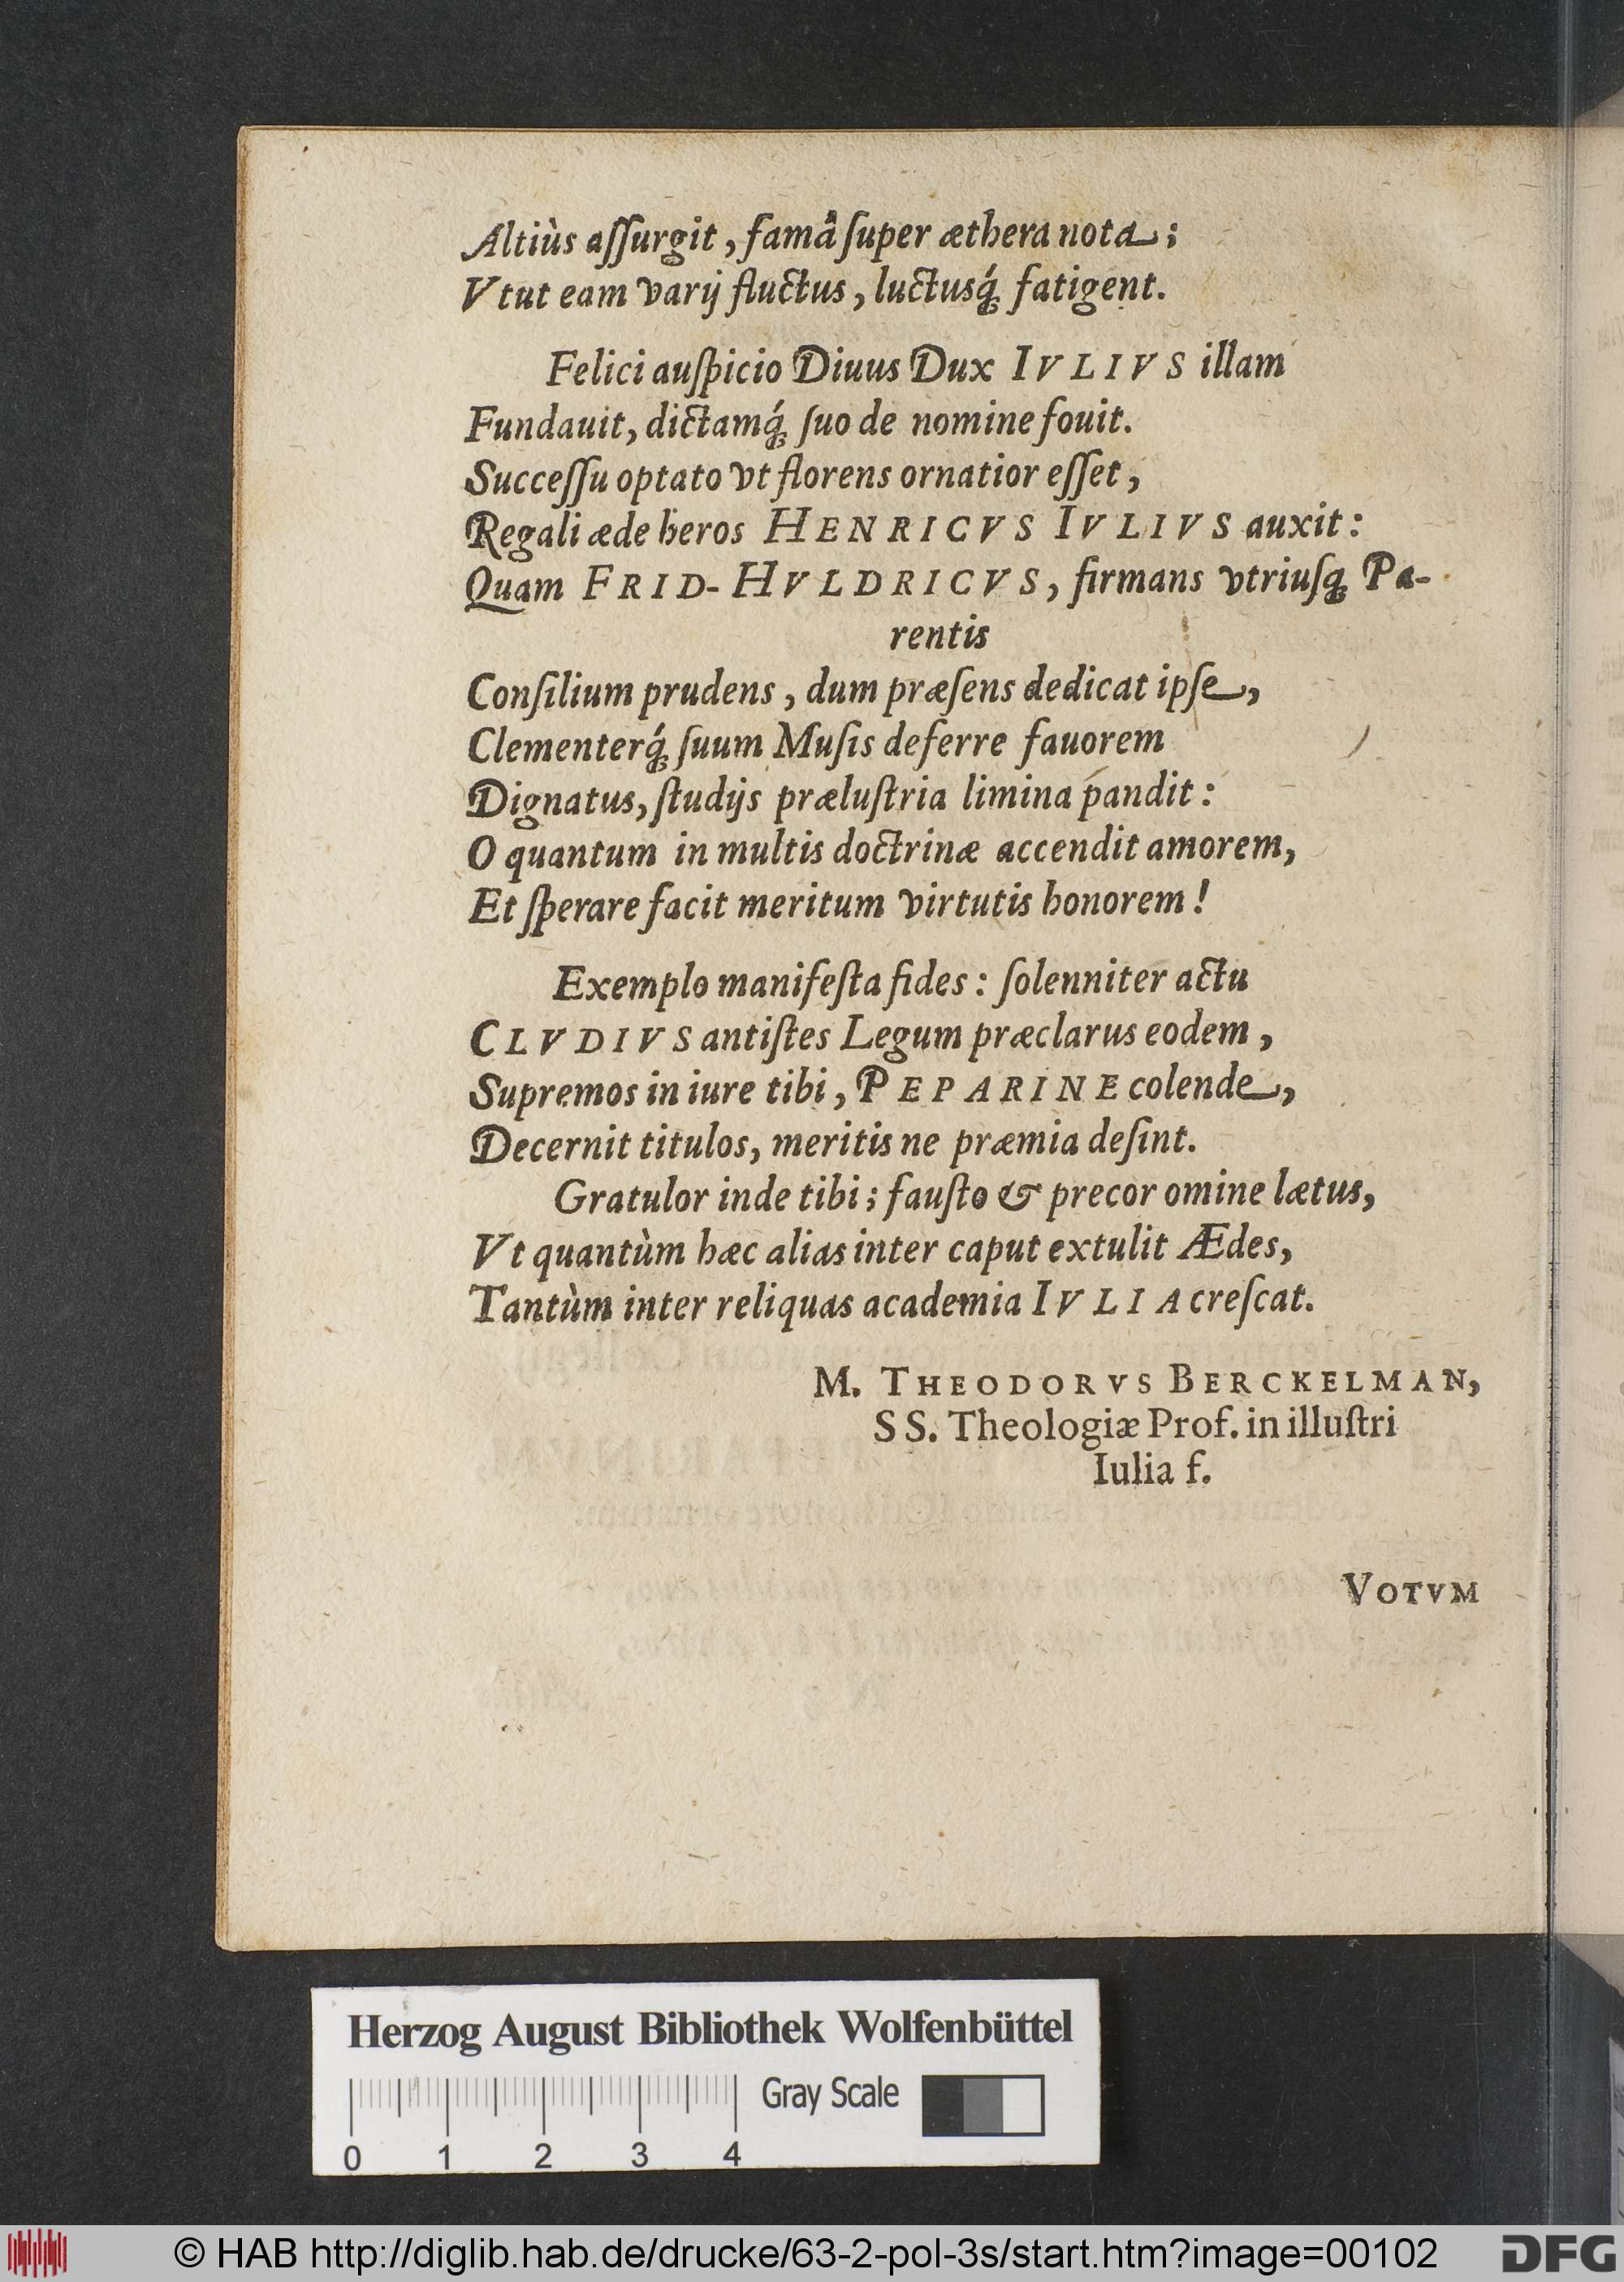 Altiùs aſſurgit, famâ ſuper æthera nota;
Vtut eam varij fluctus, luctusq́ꝫ fatigent.
Felici auſpicio Diuus Dux IVLIVS illam
Fundauit, dictamq́ꝫ ſuo de nomine fouit.
Succeſſu optato vt florens ornatior eſſet,
Regali æde heros HENRICVS IVLIVS auxit:
Quam FRID-HVLDRICVS, firmans vtriuſqꝫ Pa-
rentis
Conſilium prudens, dum præſens dedicat ipſe,
Clementerq́ꝫ ſuum Muſis deferre fauorem
Dignatus, ſtudijs præluſtria limina pandit:
O quantum in multis doctrinæ accendit amorem,
Et ſperare facit meritum virtutis honorem!
Exemplo manifeſta fides: ſolenniter actu
CLVDIVS antiſtes Legum præclarus eodem,
Supremos in iure tibi, PEPARINE colende,
Decernit titulos, meritis ne præmia deſint.
Gratulor inde tibi; fauſto & precor omine lætus,
Vt quantùm hæc alias inter caput extulit Ædes,
Tantùm inter reliquas academia IVLIA creſcat.
M. THEODORVS BERCKELMAN,
SS. Theologiæ Prof. in illuſtri
Iulia f.
VOTVM
Herzog August Bibliothek Wolfenbüttel
Gray Scale
0 1 2 3 4
© HAB http://diglib.hab.de/drucke/63-2-pol-3s/start.htm?image=00102
DFG